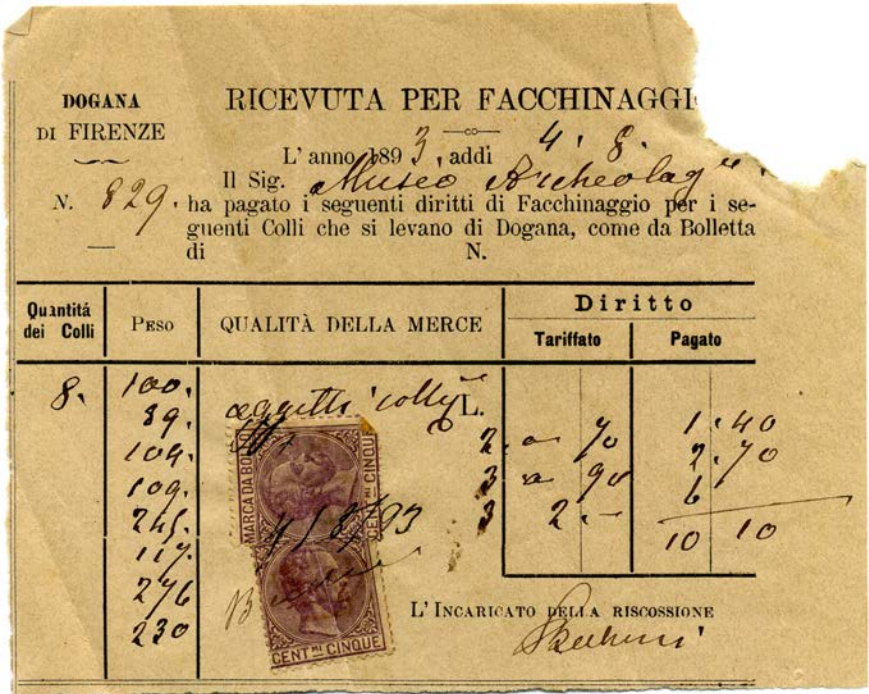 DOGANA
DI FIRENZE
N. 829.
RICEVUTA PER FACCHINAGGI
L'anno 1893, addì 4. 8.
Il Sig. Museo Archeolog
ha pagato i seguenti diritti di Facchinaggio per i se-
guenti Colli che si levano di Dogana, come da Bolletta
di N.
Quantità dei Colli PESO QUALITÀ DELLA MERCE Diritto
Tariffato Pagato
8. 100. oggetti L.
89. 2 a 70 1.40
104. 3 a 90 2.70
109. 3 2.- 6
245. 10 10
117.
276
230
MARCA DA BOLLO
CENT.MI CINQUE
4/8/93
CENT.MI CINQUE
L'INCARICATO DELLA RISCOSSIONE